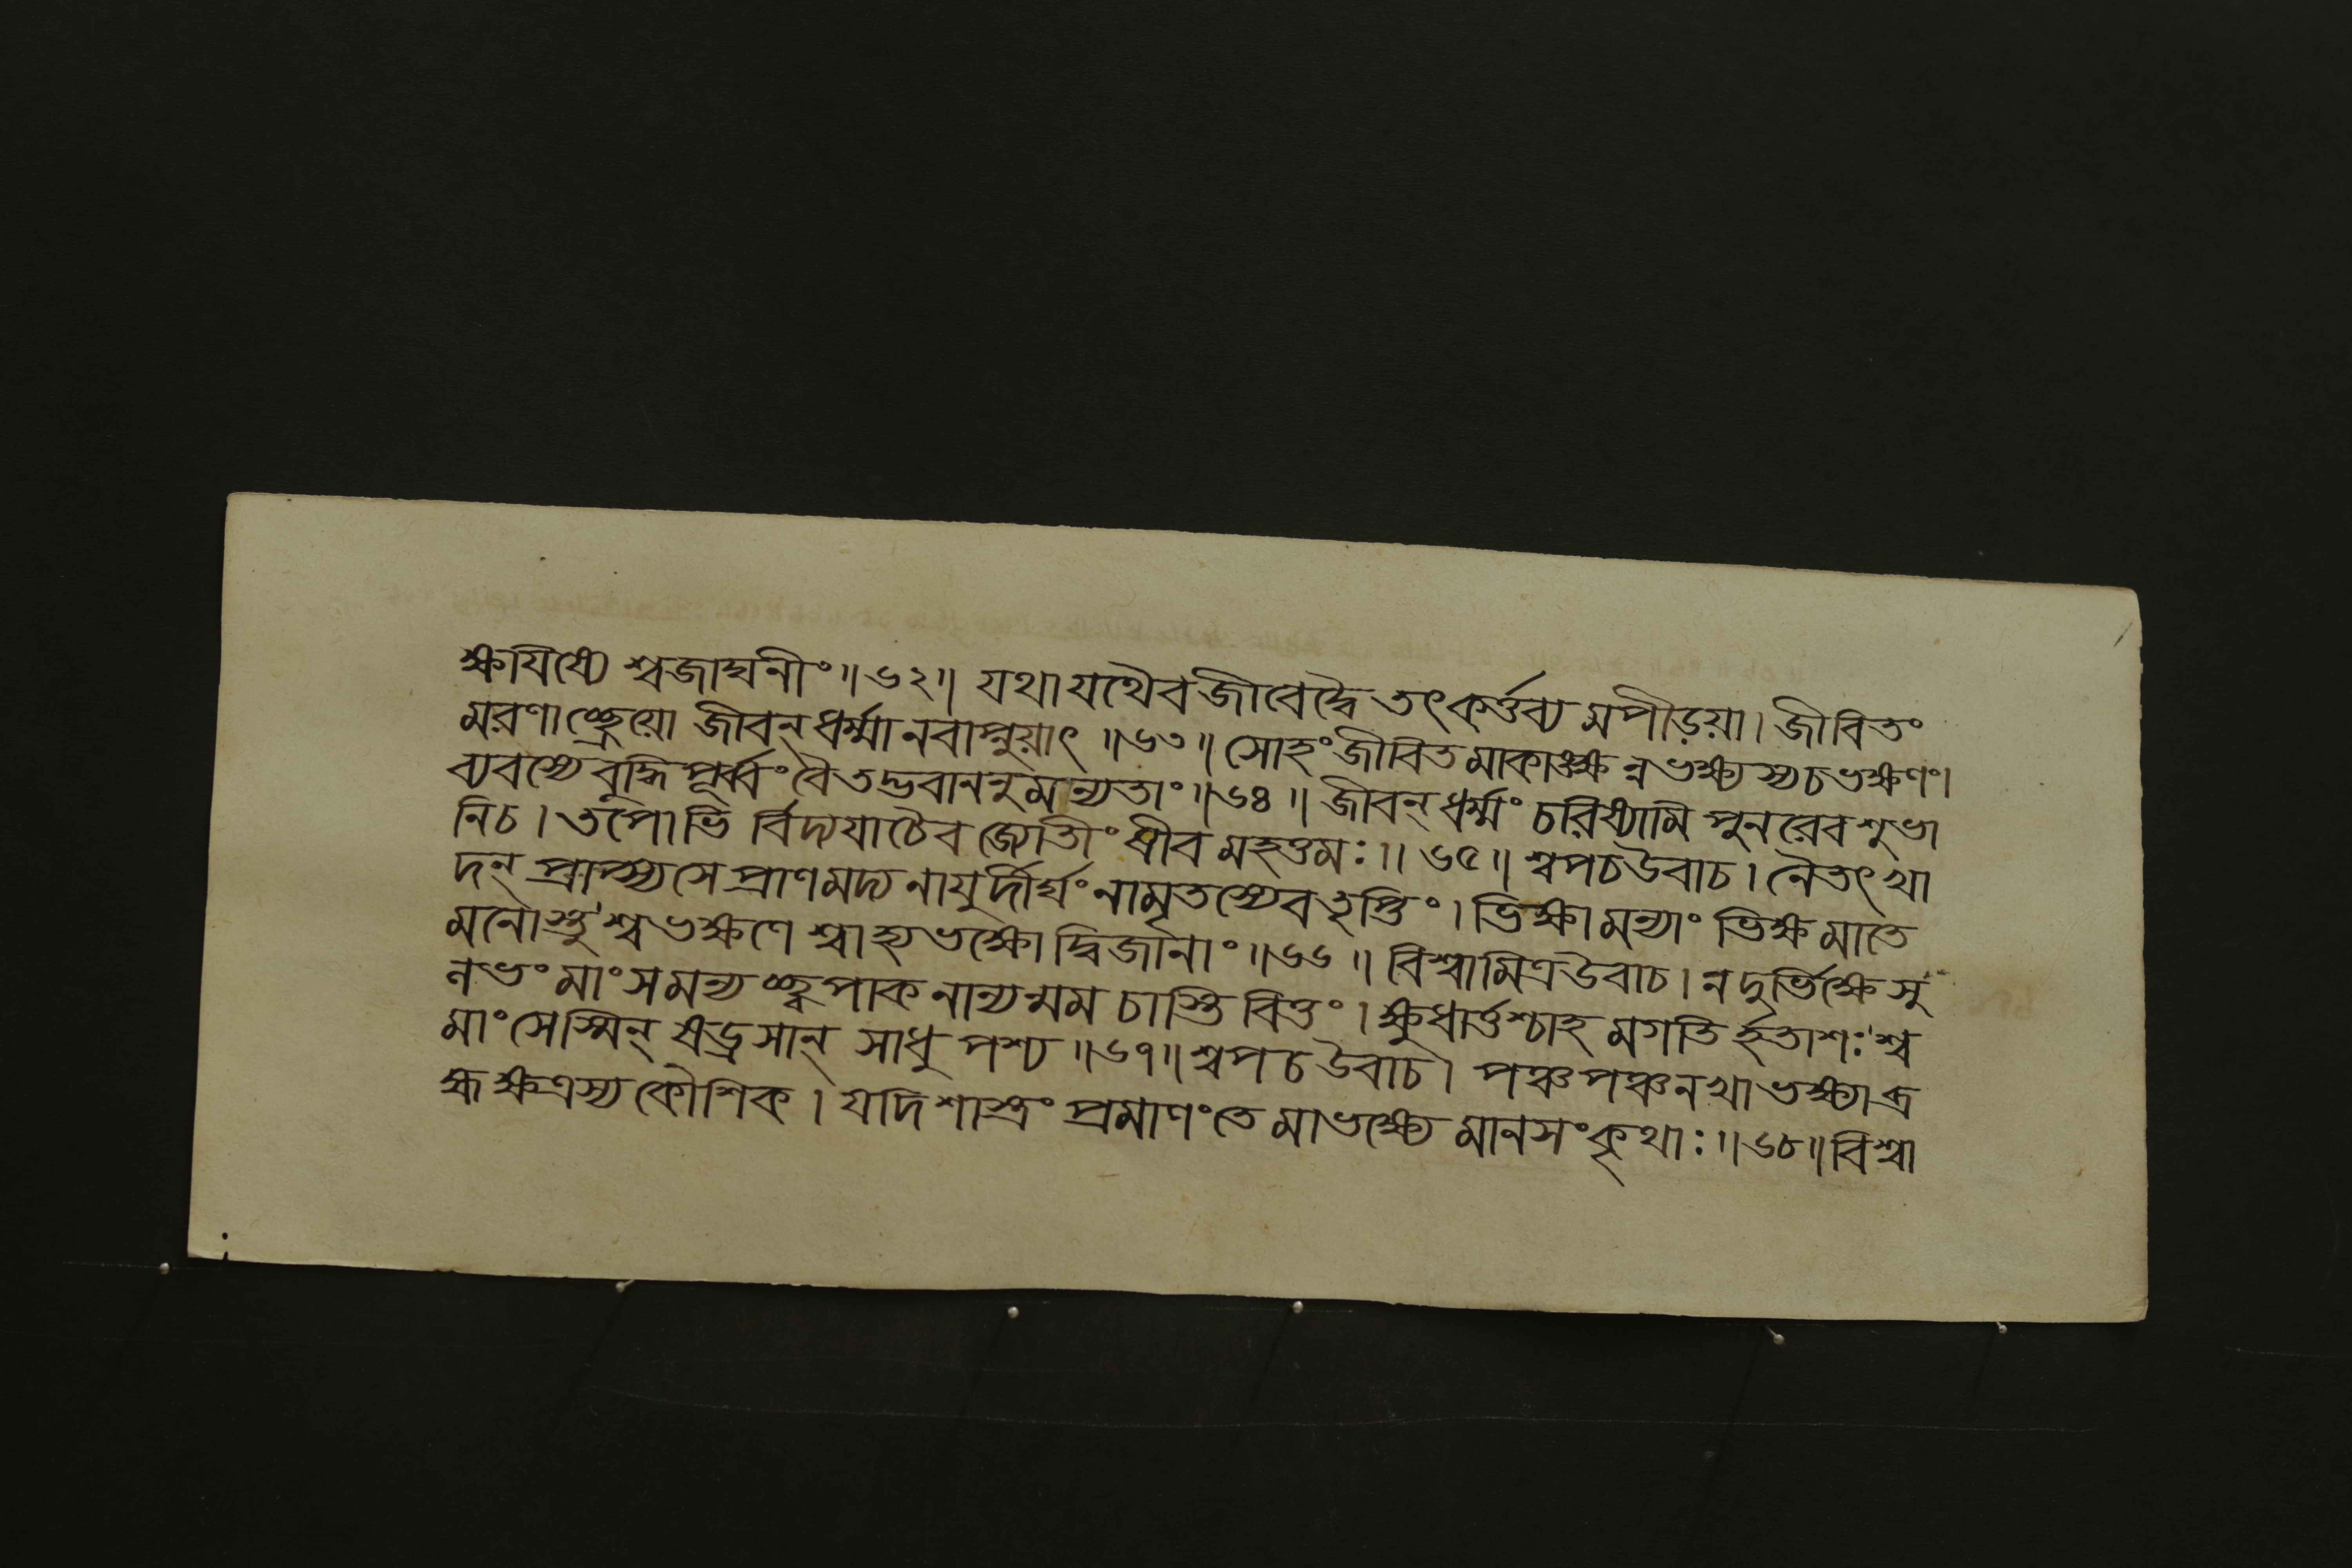 ক্ষযিষ্যে শ্বজাঘনীং॥৬২॥ যথাযথৈবজীবেদ্বৈতৎকর্ত্তব্যমপীড়য়া। জীবিতং
মরণাচ্ছ্রেয়ো জীবন্ধর্ম্মানবাপ্নুয়াৎ॥৬৩॥ সোহংজীবিতমাকাঙ্ক্ষন্নভক্ষ্যস্যচভক্ষণং।
ব্যবস্যেবুদ্ধিপূর্ব্বং বৈতদ্ভবাননুমন্যতাং॥৬৪॥ জীবন্ধর্ম্মং চরিষ্যামি পুনরেবশুভা
নিচ। তপোভির্বিদ্যযাচৈবজ্যোতীংষীবমহত্তমঃ॥৬৫॥ শ্বপচউবাচ। নৈতৎখা
দন্ প্রাপ্স্যসেপ্রাণমদ্যনাযুর্দীর্ঘং নামৃতস্যেবতৃপ্তিং। ভিক্ষামন্যাং ভিক্ষমাতে
মনোস্তু শ্বভক্ষণে শ্বাহ্যভক্ষ্যোদ্বিজানাং॥৬৬॥ বিশ্বামিত্রউবাচ। নদুর্ভিক্ষেসু
নভং মাংসমন্যচ্ছ্বপাকনান্যন্মম চাস্তি বিত্তং। ক্ষুধার্ত্তশ্চাহমগতির্হতাশঃশ্ব
মাংসেস্মিন্ ষড্রসান্ সাধুপশ্য॥৬৭॥ শ্বপচউবাচ। পঞ্চপঞ্চনখাভক্ষ্যাব্র
হ্মক্ষত্রস্যকৌশিক। যদিশাস্ত্রং প্রমাণংতে মাভক্ষ্যে মানসংকৃথাঃ॥৬৮॥ বিশ্বা